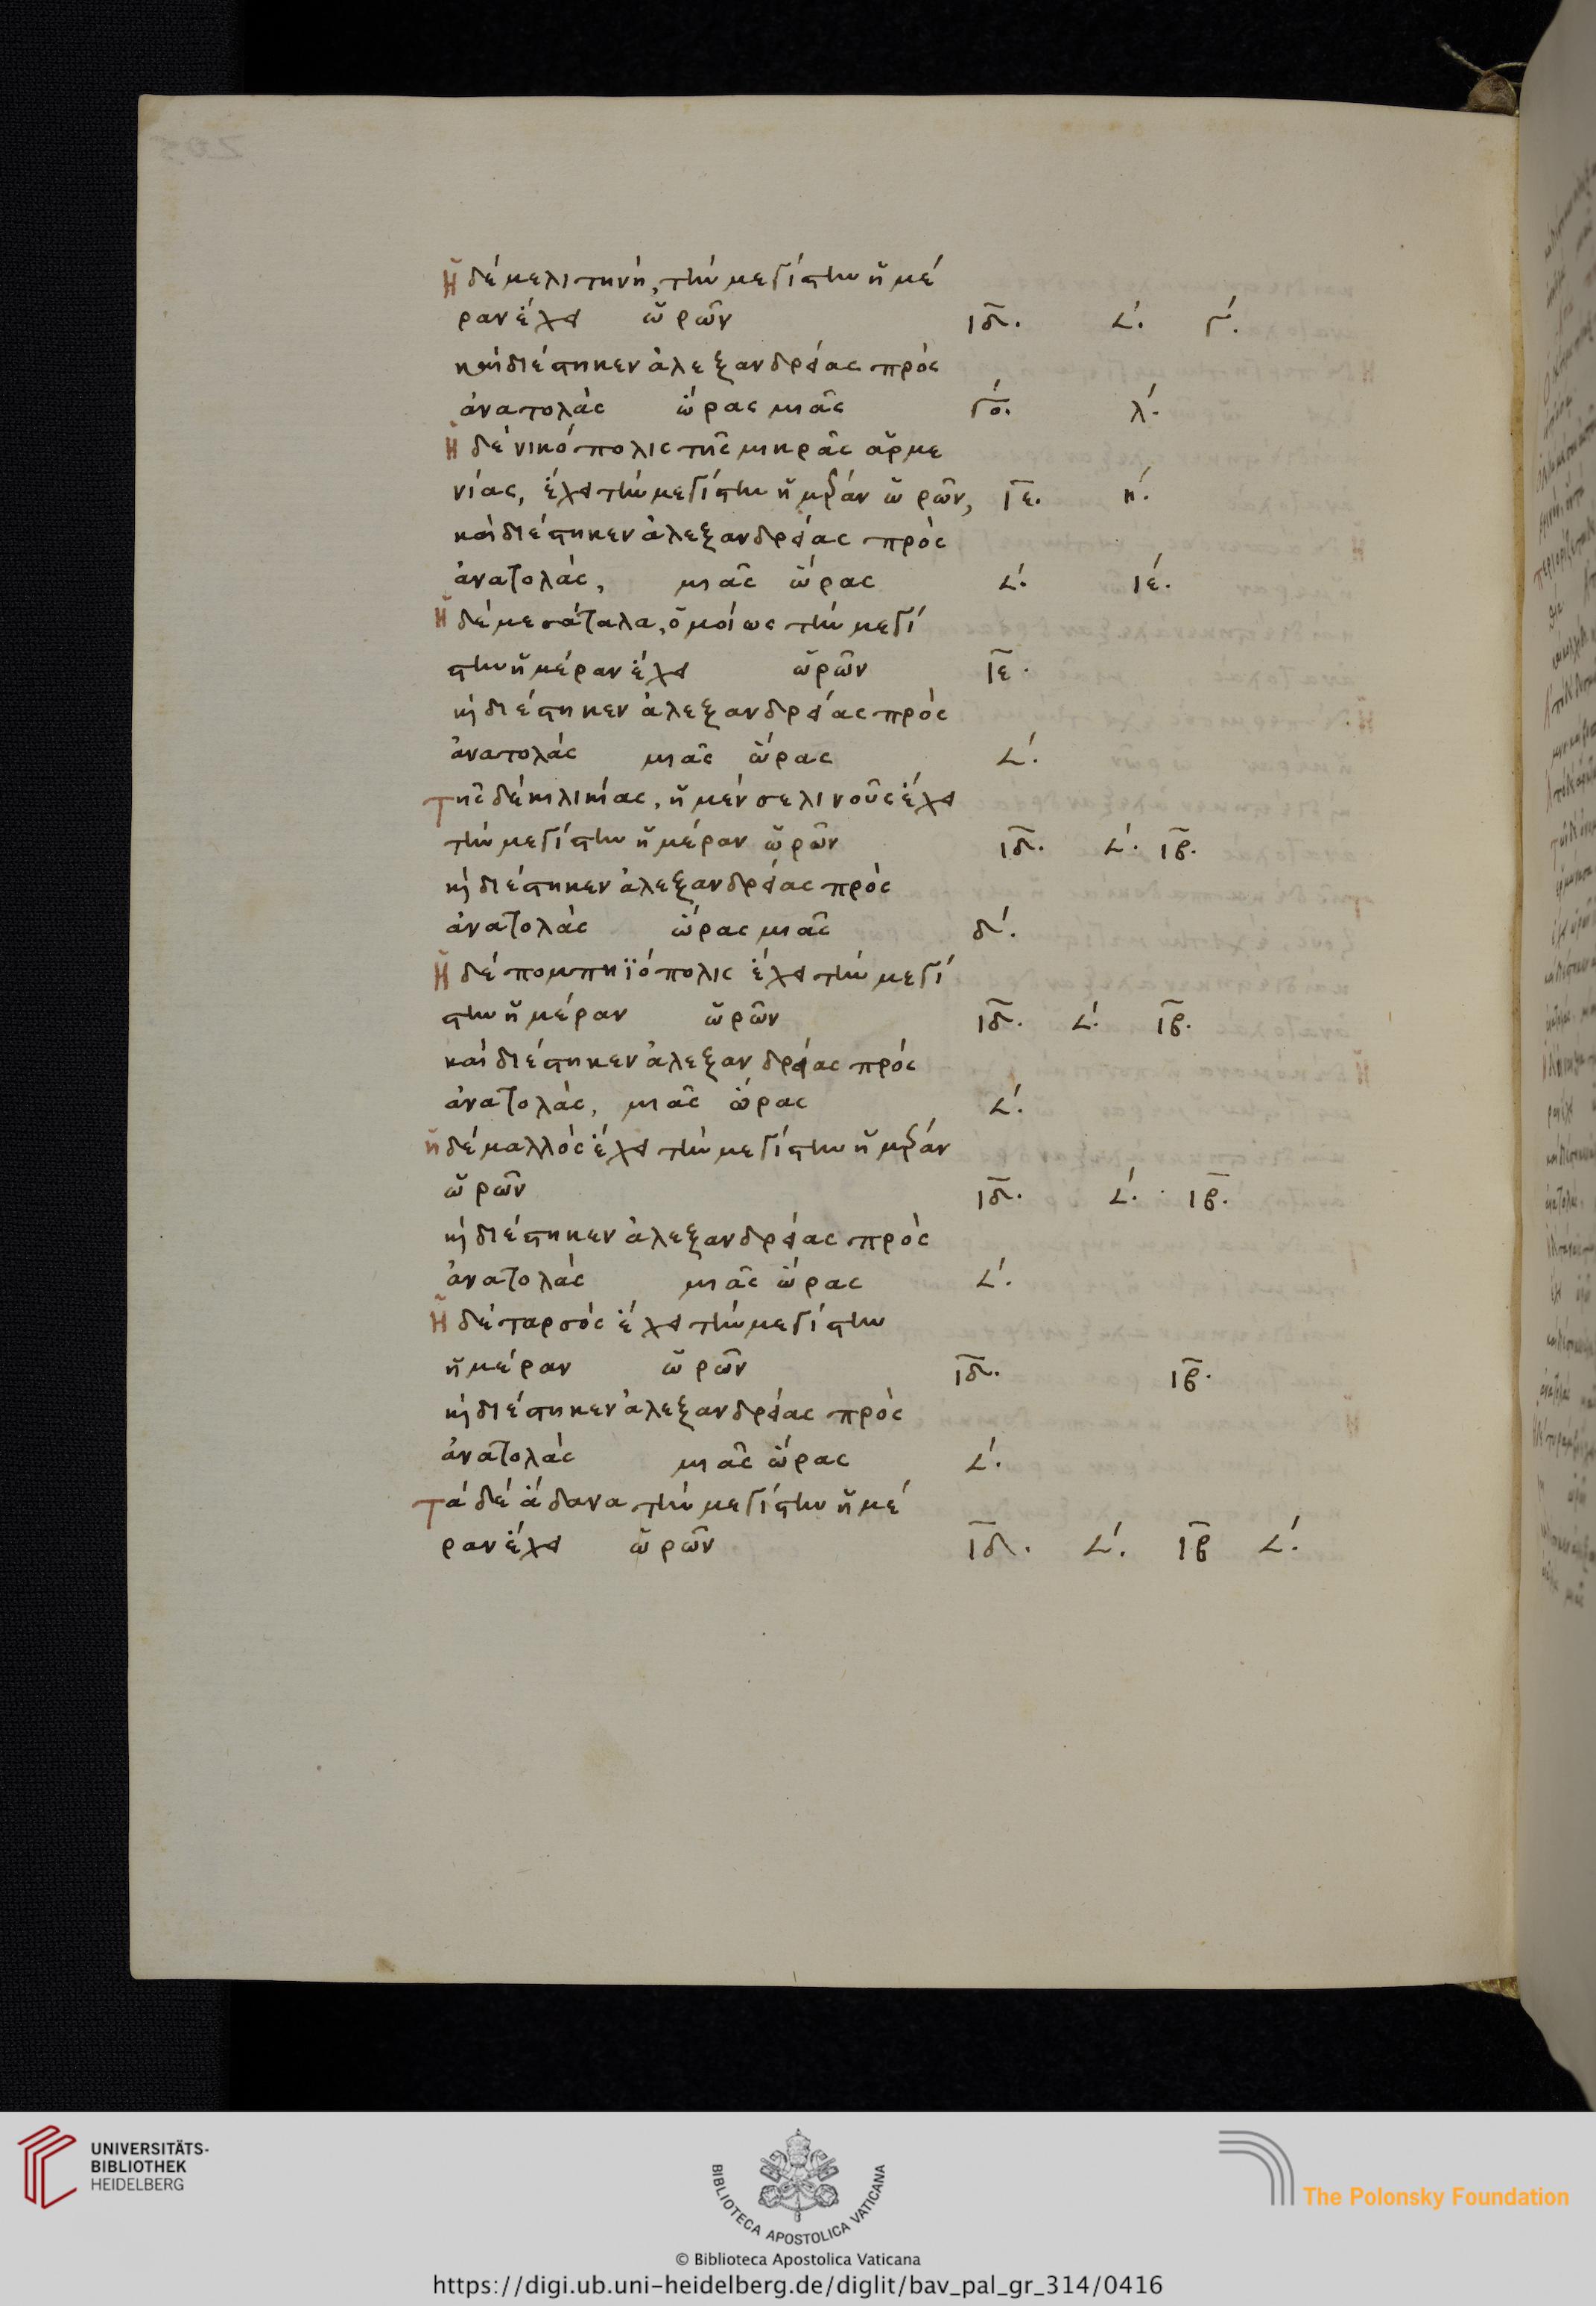 Ἡ δὲ μελιτηνὴ, τὴν μεγίστην ἡμέ
ραν ἔχει ὡρῶν ιδ. 𐅵. γ.
καὶ διέστηκεν ἀλεξανδρείας πρὸς
ἀνατολὰς ὥρας μιᾶς γο. λ.
Ἡ δὲ νικόπολις τῆς μικρᾶς ἀρμε
νίας, ἔχει τὴν μεγίστην ἡμέραν ὡρῶν, ιε. η.
καὶ διέστηκεν ἀλεξανδρείας πρὸς
ἀνατολὰς, μιᾶς ὥρας 𐅵. ιε.
Ἡ δὲ με σάταλα, ὁμοίως τὴν μεγί
στην ἡμέραν ἔχει ὡρῶν ιε.
καὶ διέστηκεν ἀλεξανδρείας πρὸς
ἀνατολὰς μιᾶς ὥρας 𐅵.
Τῆς δὲ κιλικίας, ἡ μὲν σελινοῦς ἔχει
τὴν μεγίστην ἡμέραν ὡρῶν ιδ. 𐅵. ιβ.
καὶ διέστηκεν ἀλεξανδρείας πρὸς
ἀνατολὰς ὥρας μιᾶς δ.
Ἡ δὲ πομπηϊόπολις ἔχει τὴν μεγί
στην ἡμέραν ὡρῶν ιδ. 𐅵. ιβ.
καὶ διέστηκεν ἀλεξανδρείας πρὸς
ἀνατολὰς, μιᾶς ὥρας 𐅵.
ἡ δὲ μαλλὸς ἔχει τὴν μεγίστην ἡμέραν
ὡρῶν ιδ. 𐅵. ιβ.
καὶ διέστηκεν ἀλεξανδρείας πρὸς
ἀνατολὰς μιᾶς ὥρας 𐅵.
Ἡ δὲ ταρσὸς ἔχει τὴν μεγίστην
ἡμέραν ὡρῶν ιδ. ιβ.
καὶ διέστηκεν ἀλεξανδρείας πρὸς
ἀνατολὰς μιᾶς ὥρας 𐅵.
Τὰ δὲ ἄδανα τὴν μεγίστην ἡμέ
ραν ἔχει ὡρῶν ιδ. 𐅵. ιβ 𐅵.
UNIVERSITÄTS-
BIBLIOTHEK
HEIDELBERG
BIBLIOTECA APOSTOLICA VATICANA
The Polonsky Foundation
© Biblioteca Apostolica Vaticana
https://digi.ub.uni-heidelberg.de/diglit/bav_pal_gr_314/0416